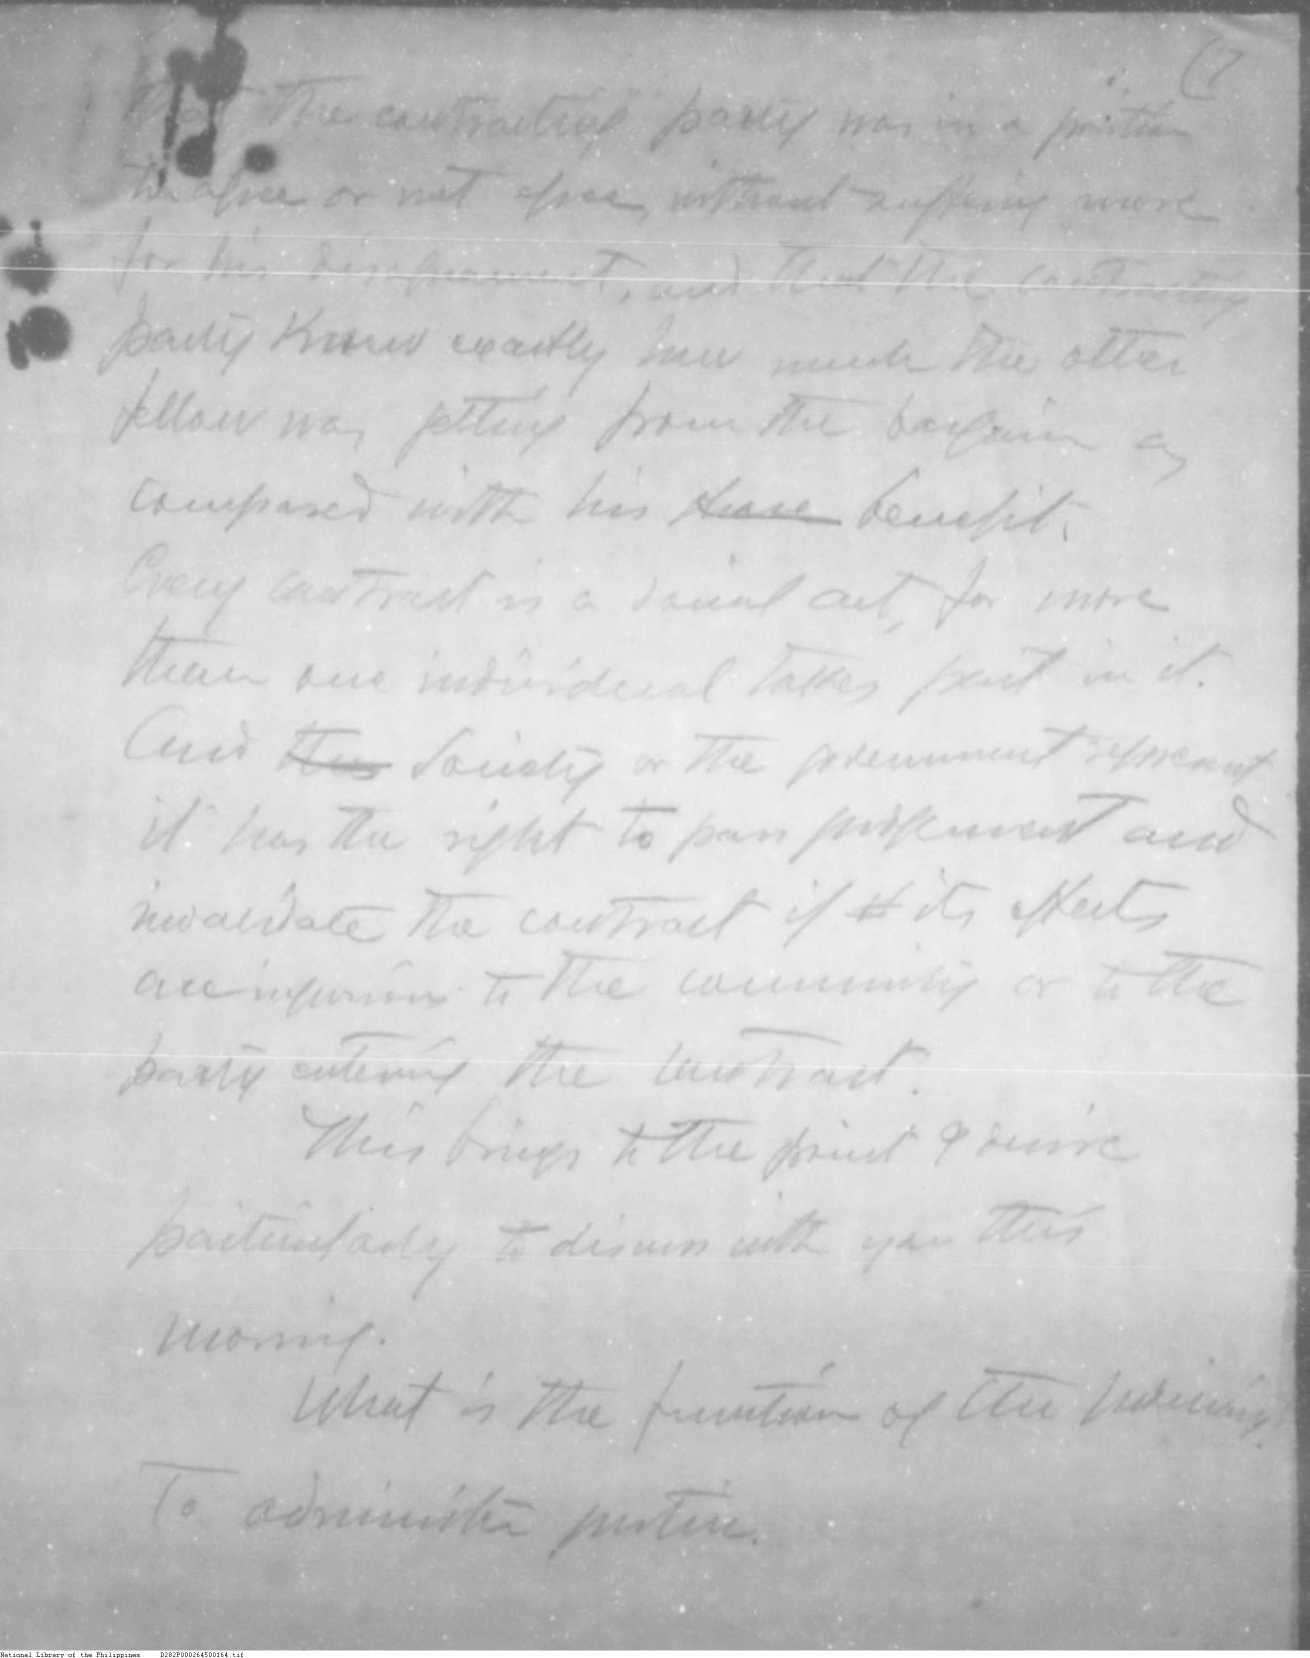 (7
that the contracting party was in a position
to agree or not agree, without suffering more
for his disagreement, and that the contracting
party knew exactly how much the other
fellow was getting from the bargain as
compared with his benefit.
Every contract is a social act, for more
than one individual takes part in it.
And Society or the government represent
it has the right to pass judgement and
invalidate the contract if its effects
are injurious to the community or to the
party entering the contract.
This brings to the point I desire
particularly to discuss with you this
morning.
What is the function of the Judiciary?
To administer justice.
National Library of the Philippines D282P000264500164.tif